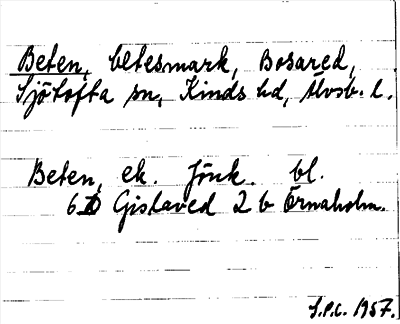 Beten, betesmark, Bosared,
Sjötofta sn, Kinds hd, Älvsb. l.
Beten, ek. Jönk. bl.
6 D Gislaved 2 b Ernaholm.
S.P.C. 1957.